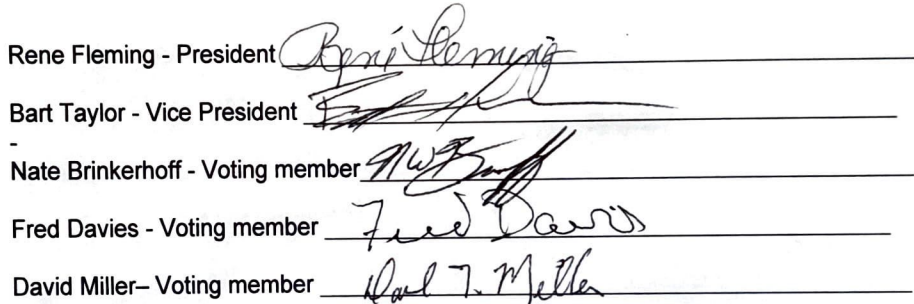 Rene Fleming - President René Fleming
Bart Taylor - Vice President
-
Nate Brinkerhoff - Voting member
Fred Davies - Voting member Fred Davis
David Miller– Voting member David T. Miller